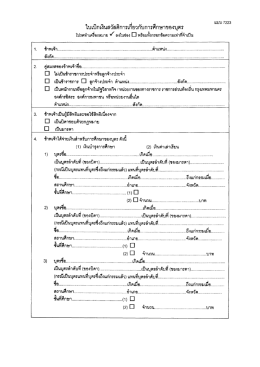 แบบ 7223
ใบเบิกเงินสวัสดิการเกี่ยวกับการศึกษาของบุตร
โปรดทำเครื่องหมาย ✓ ลงในช่อง □ พร้อมทั้งกรอกข้อความเท่าที่จำเป็น
1. ข้าพเจ้า..........ตำแหน่ง..........
สังกัด..........
2. คู่สมรสของข้าพเจ้าชื่อ..........
□ ไม่เป็นข้าราชการประจำหรือลูกจ้างประจำ
□ เป็นข้าราชการ □ ลูกจ้างประจำ ตำแหน่ง..........สังกัด..........
□ เป็นพนักงานหรือลูกจ้างในรัฐวิสาหกิจ / หน่วยงานของทางราชการ ราชการส่วนท้องถิ่น กรุงเทพมหานคร
องค์กรอิสระ องค์การมหาชน หรือหน่วยงานอื่นใด
ตำแหน่ง..........สังกัด..........
3. ข้าพเจ้าเป็นผู้มีสิทธิและขอใช้สิทธิเนื่องจาก
□ เป็นบิดาชอบด้วยกฎหมาย
□ เป็นมารดา
4. ข้าพเจ้าได้จ่ายเงินสำหรับการศึกษาของบุตร ดังนี้
(1) เงินบำรุงการศึกษา (2) เงินค่าเล่าเรียน
1) บุตรชื่อ..........เกิดเมื่อ..........
เป็นบุตรลำดับที่ (ของบิดา)..........เป็นบุตรลำดับที่ (ของมารดา)..........
(กรณีเป็นบุตรแทนที่บุตรซึ่งถึงแก่กรรมแล้ว) แทนที่บุตรลำดับที่..........
ชื่อ..........เกิดเมื่อ..........ถึงแก่กรรมเมื่อ..........
สถานศึกษา..........อำเภอ..........จังหวัด..........
ชั้นที่ศึกษา..........(1) □
(2) □ จำนวน..........บาท
2) บุตรชื่อ..........เกิดเมื่อ..........
เป็นบุตรลำดับที่ (ของบิดา)..........เป็นบุตรลำดับที่ (ของมารดา)..........
(กรณีเป็นบุตรแทนที่บุตรซึ่งถึงแก่กรรมแล้ว) แทนที่บุตรลำดับที่..........
ชื่อ..........เกิดเมื่อ..........ถึงแก่กรรมเมื่อ..........
สถานศึกษา..........อำเภอ..........จังหวัด..........
ชั้นที่ศึกษา..........(1) □
(2) □ จำนวน..........บาท
3) บุตรชื่อ..........เกิดเมื่อ..........
เป็นบุตรลำดับที่ (ของบิดา)..........เป็นบุตรลำดับที่ (ของมารดา)..........
(กรณีเป็นบุตรแทนที่บุตรซึ่งถึงแก่กรรมแล้ว) แทนที่บุตรลำดับที่..........
ชื่อ..........เกิดเมื่อ..........ถึงแก่กรรมเมื่อ..........
สถานศึกษา..........อำเภอ..........จังหวัด..........
ชั้นที่ศึกษา..........(1) □
(2) □ จำนวน..........บาท